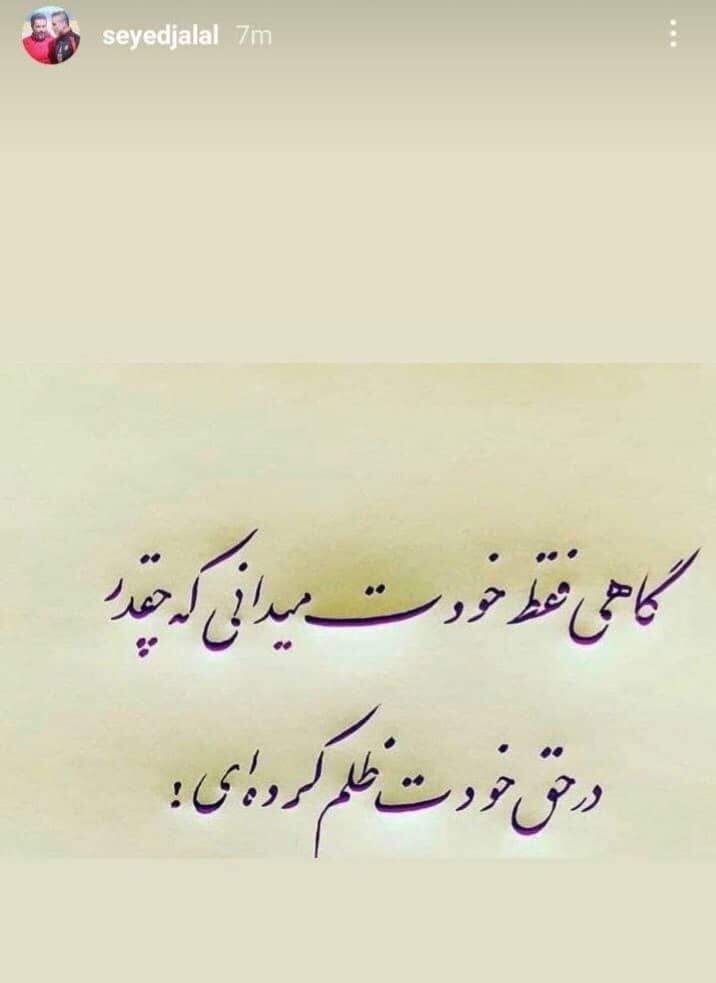 seyedjalal 7m
گاهی فقط خودت میدانی که چقدر
در حق خودت ظلم کرده‌ای !